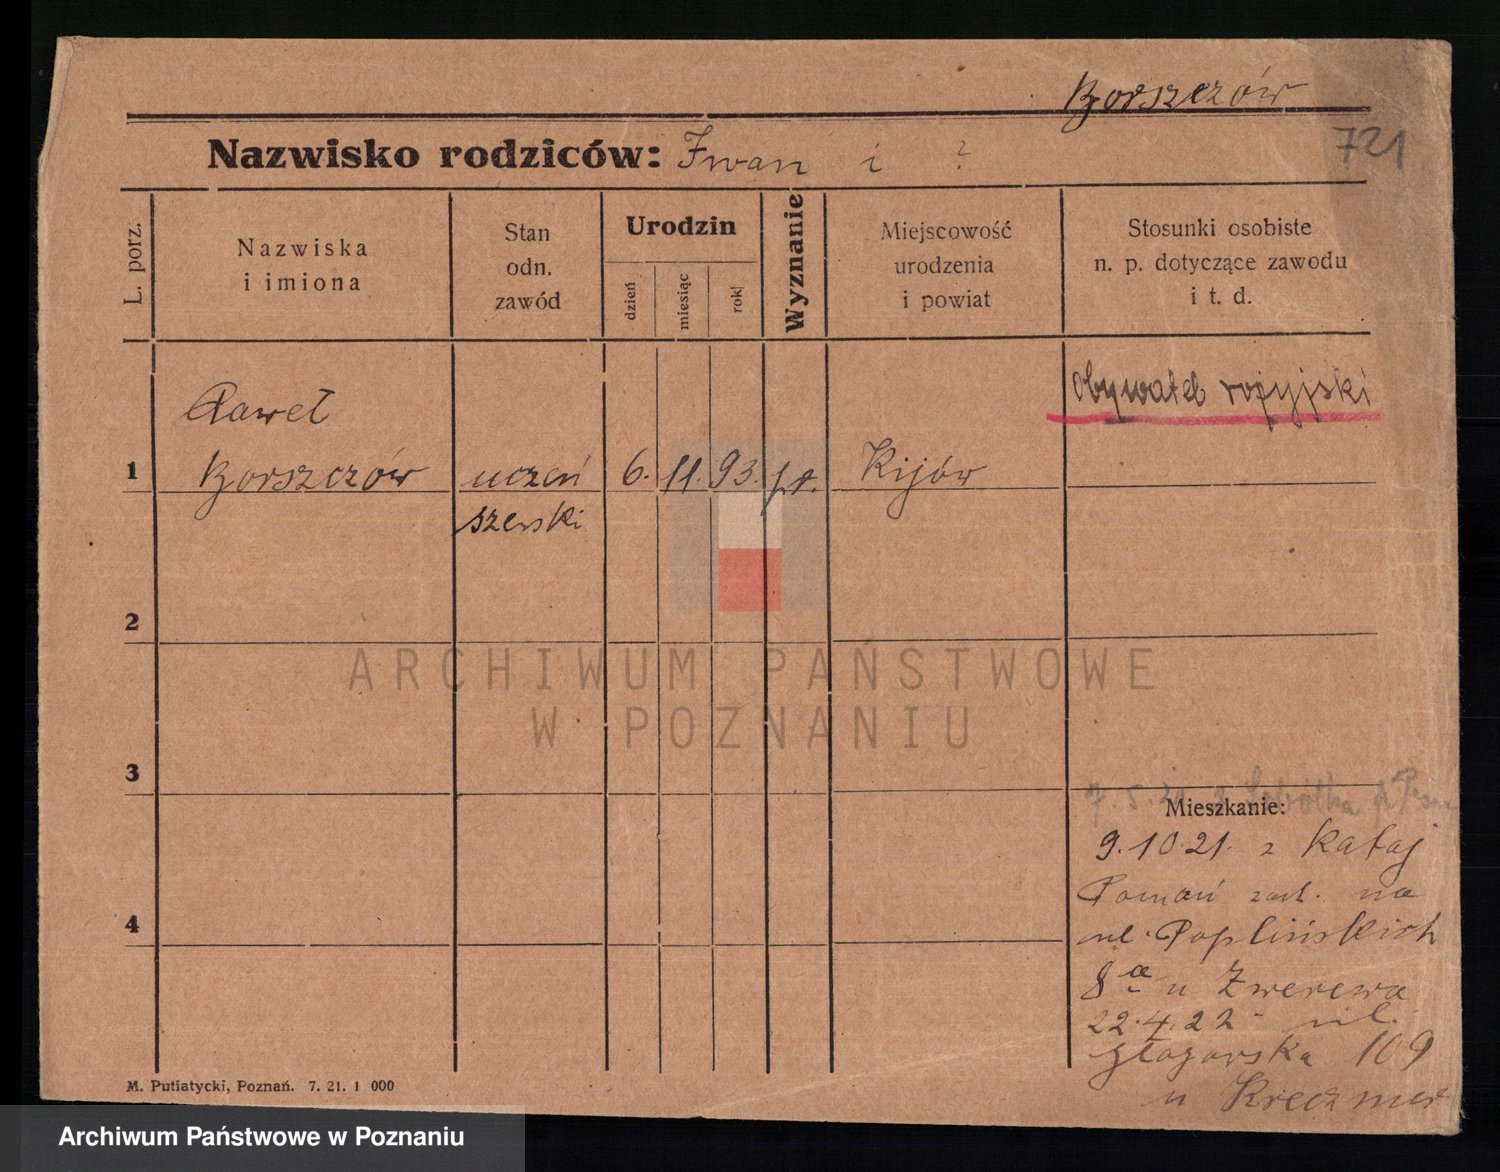 Borszczów
721
Nazwisko rodziców: Iwan i ?
L. porz.
Nazwiska
i imiona
Stan
odn.
zawód
Urodzin
dzień
miesiąc
rok
Wyznanie
Miejscowość
urodzenia
i powiat
Stosunki osobiste
n. p. dotyczące zawodu
i t. d.
obywatel rosyjski
Paweł
1 Borszczów uczeń 6. 11. 93. Kijów
szewski
2
3
4
ARCHIWUM PAŃSTWOWE
W POZNANIU
Mieszkanie:
9.10 21. z
na
ul. Poplińskich
8a u Zwerewa
22.4.22 - ul.
Głogowska 109
u Kreczmer
M. Putiatycki, Poznań. 7. 21. 1 000
Archiwum Państwowe w Poznaniu